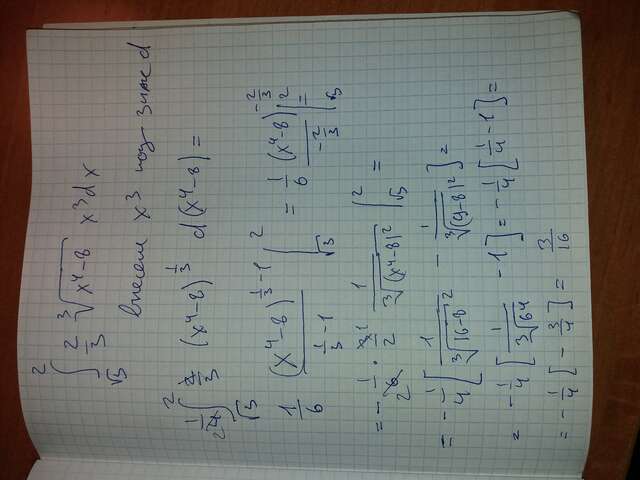 ∫_{√3}^{2} 2/3 ∛(x⁴-8) x³dx
внесем x³ под знак d
1/4 ∫_{√3}^{2} 2/3 (x⁴-8)^{1/3} d(x⁴-8) =
1/6 (x⁴-8)^{1/3-1} / (1/3-1) |_{√3}^{2} = 1/6 (x⁴-8)^{-2/3} / (-2/3) |_{√3}^{2} =
= -1/6 · 3/2 1/∛((x⁴-8)²) |_{√3}^{2} =
= -1/4 [ 1/∛(16-8)² - 1/∛((9-8)²) ] =
= -1/4 [ 1/∛64 - 1 ] = -1/4 [ 1/4 - 1 ] =
= -1/4 [ -3/4 ] = 3/16